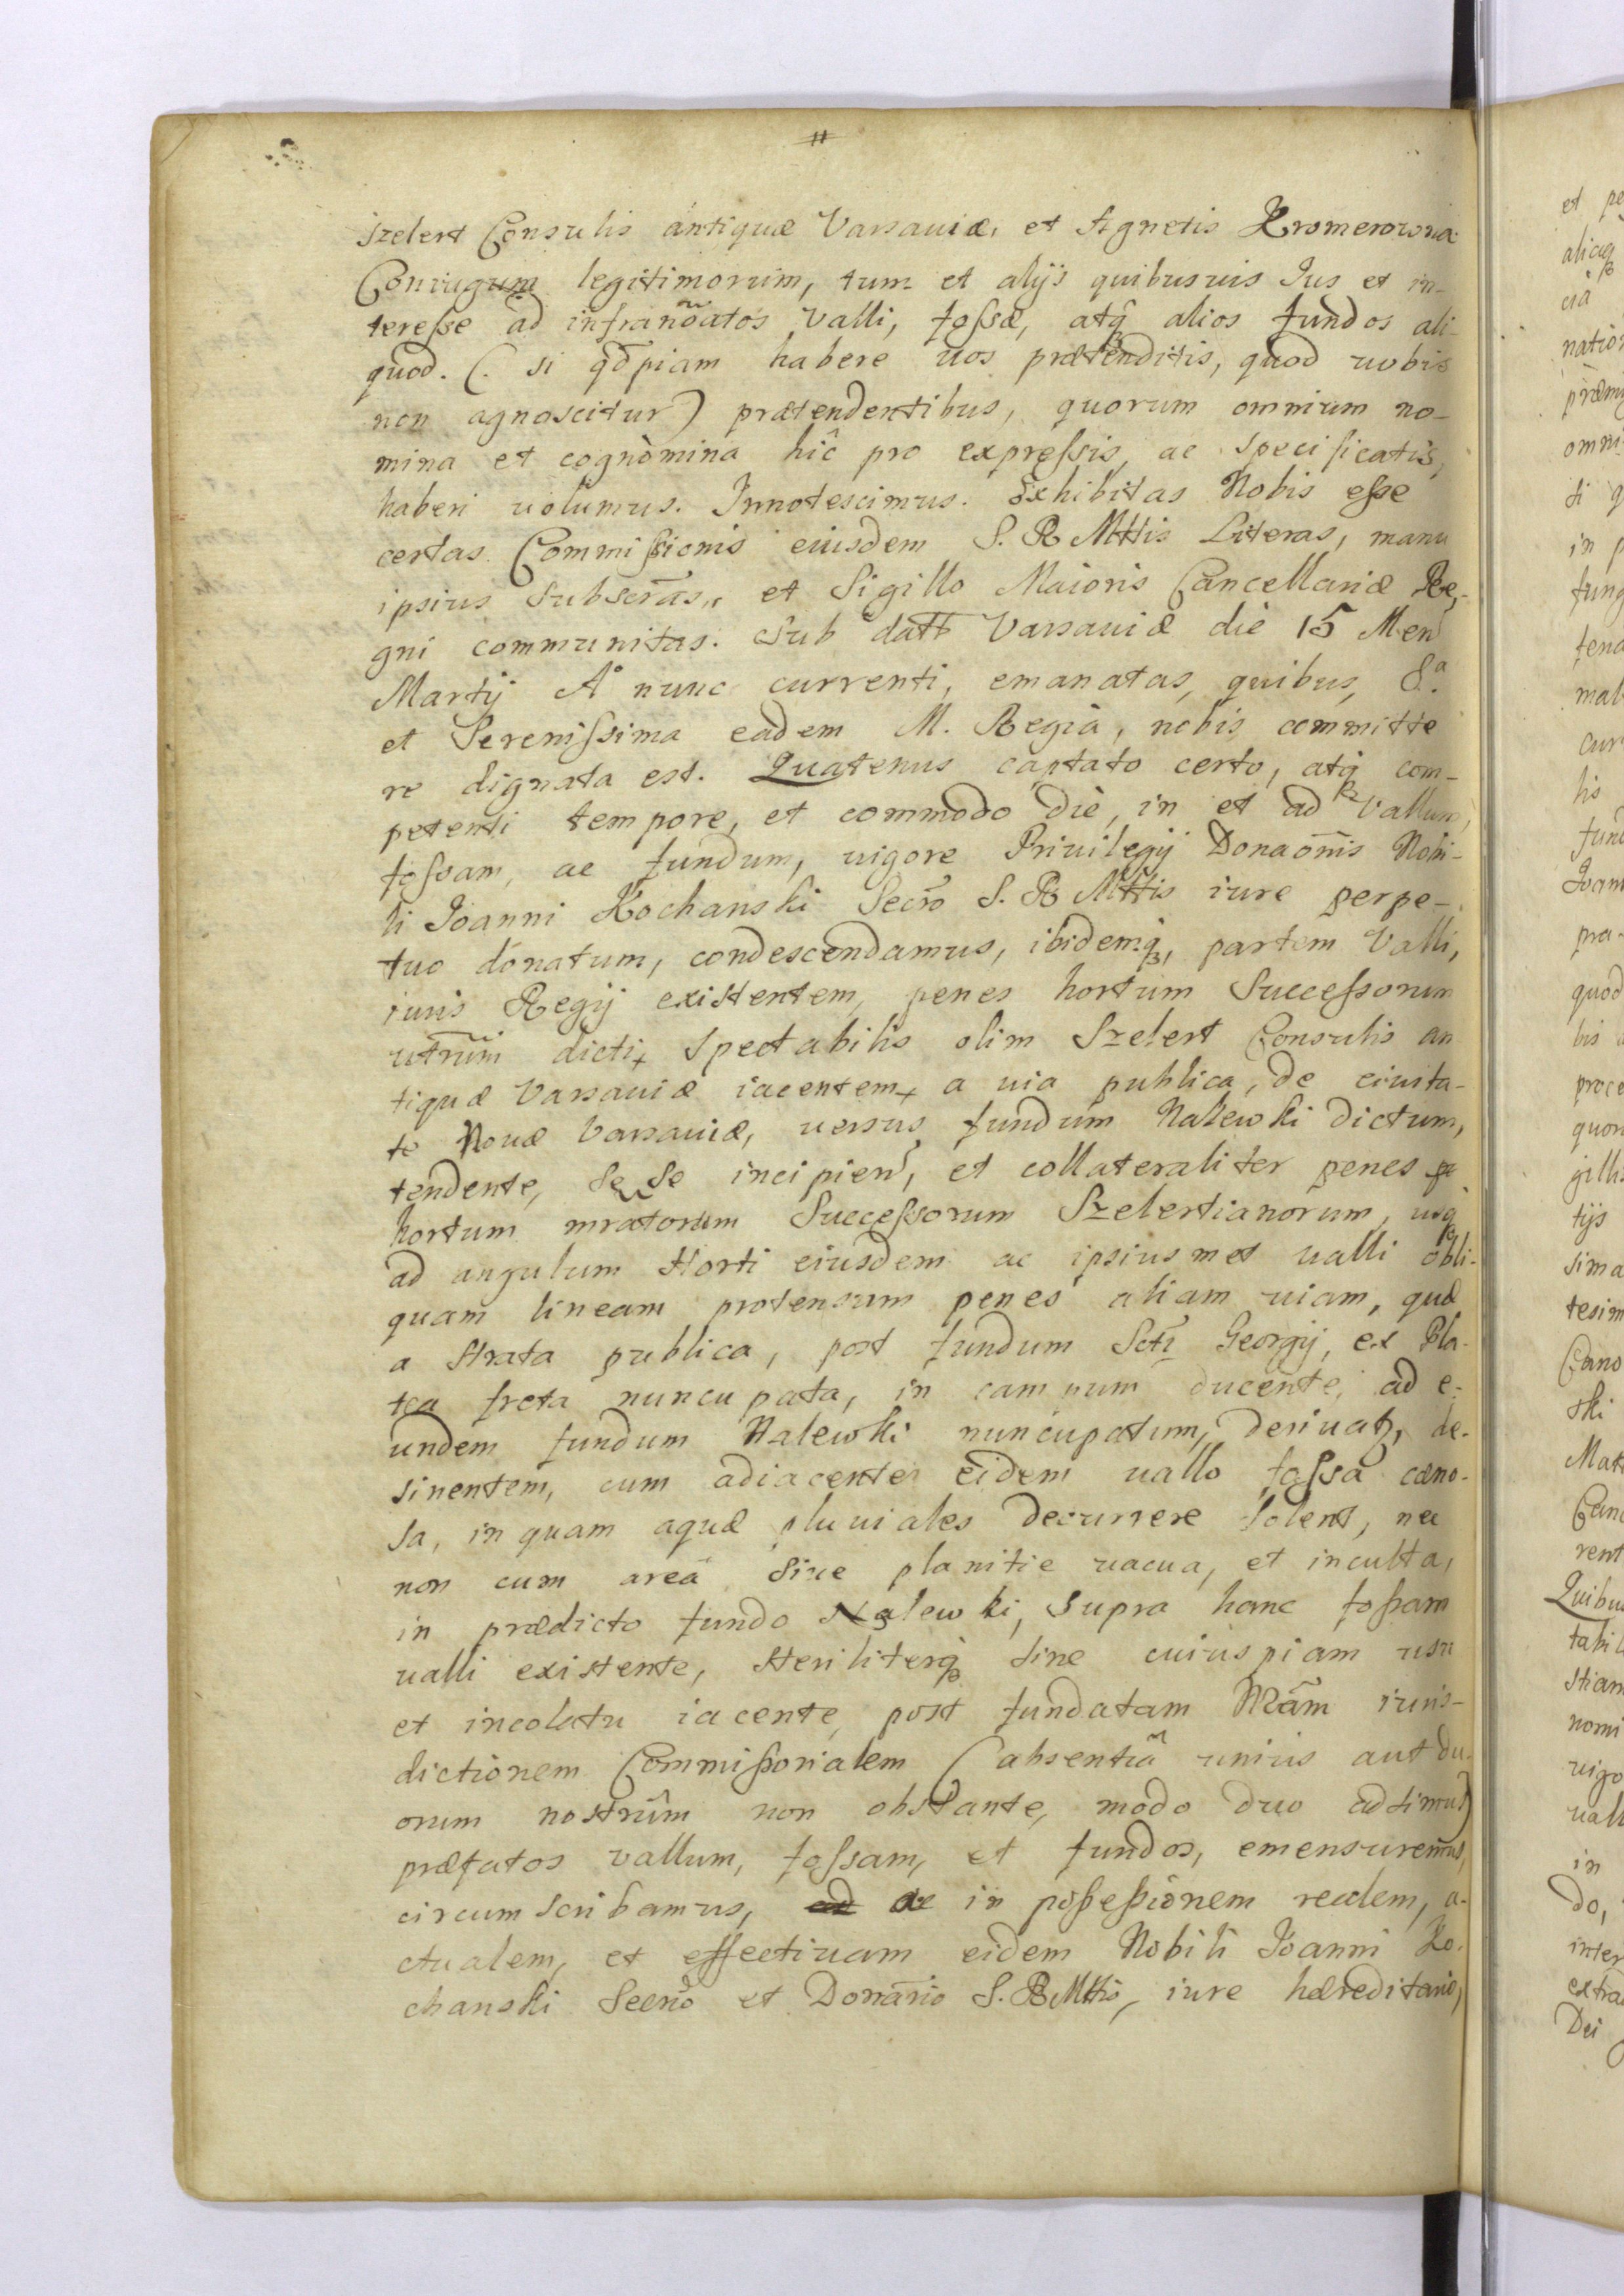 Szelert Consulis antiquæ Varsauiæ, et Agnetis Kromerowna
Coniugum legitimorum, tum et alijs quibusuis Ius et in-
teresse ad infranõatos Valli, fossæ, atq̃ alios fundos ali-
quod. (. si qđpiam habere uos prætenditis, quod uobis
non agnoscitur) prætendentibus, quorum omnium no-
mina et cognomina hîc pro expressis, ac specificatis,
haberi uolumus. Innotescimus. Exhibitas Nobis esse
certas Commissionis eiusdem S. R Mttis Literas, manu
ipsius subscrãs, et Sigillo Maioris Cancellariæ Re-
gni communitas. Sub datt Varsauiæ die 15 Men
Martij A° nunc currenti, emanatas, quibus, S.ª
et Serenissima eadem M. Regia, nobis committe
re dignata est. Quatenus captato certo, atq̃ com-
petenti tempore, et commodo die, in et ad Vallum,
fossam, ac fundum, uigore Priuilegij Donaõnis Nobi-
li Ioanni Kochanski Secrõ S. R Mttis iure perpe-
tuo donatum, condescendamus, ibidemq̃, partem Valli,
iuris Regij existentem, penes hortum Successorum
utrũm dicti Spectabilis olim Szelert Consulis an
tiquæ Varsauiæ iacentem, a uia publica, de ciuita-
te Nouæ Varsauiæ, uersus fundum Nalewki dictum,
tendente, se se incipien, et collateraliter penes
hortum mratorum Successorum Szelertianorum, usq̃
ad angulum Horti eiusdem ac ipsiusmet ualli obli-
quam lineam protensum penes aliam uiam, quæ
a strata publica, post fundum Scti Georgij, ex Pla-
tea freta nuncupata, in campum ducente, ad e-
undem fundum Nalewki nuncupatum, deriuat, de-
sinentem, cum adiacente eidem uallo fossa cæno-
sa, in quam aquæ pluuiales decurrere solent, nec
non cum areâ siue planitie uacua, et inculta,
in prædicto fundo Nalewki, supra hanc fossam
ualli existente, steriliterq̃ sine cuiuspiam usu
et incolatu iacente, post fundatam Nrãm iuris-
dictionem Commissorialem (absentiâ unius aut du-
orum nostrûm non obstante, modo duo adsimus)
præfatos vallum, fossam, et fundos, emensuremus,
circumscribamus, ac in possessionem realem, a-
ctualem, et effectiuam eidem Nobili Ioanni Ko-
chanski Secrõ et Donãrio S. R Mttis, iure hæreditario,